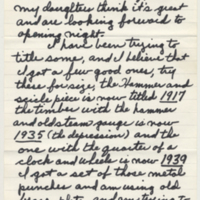 my daughters think it's great
and are looking forward to
opening night.
I have been trying to
title some, and I believe that
I got a few good ones, try
these for size, the Hammer and
sickle piece is now titled 1917
the timber with the hammer
and old steam gauge is now
1935 (the depression) and the
one with the quarter of a
clock and wheels is now 1939
I got a set of those metal
punches and am using old